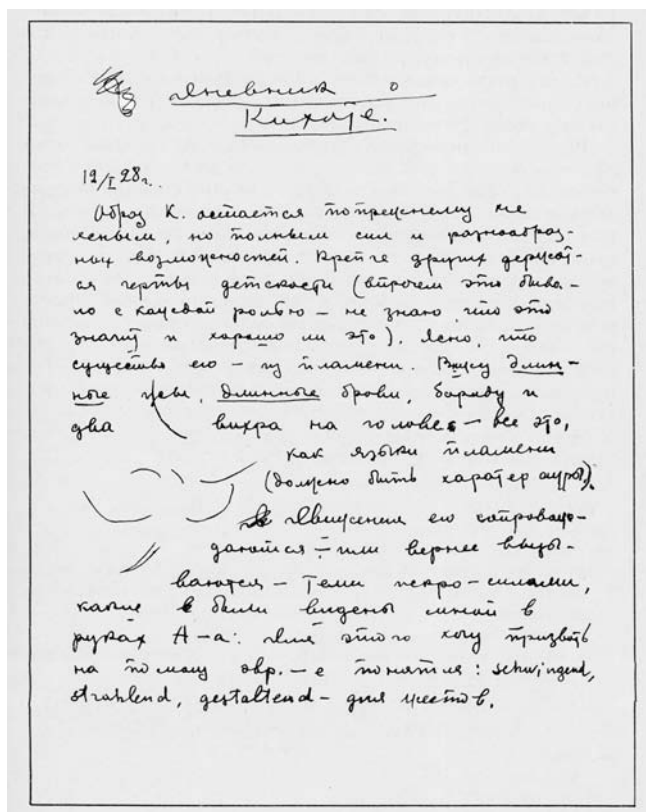 Дневник о
Кихоте.
19/I 28 г.
Образ К. остается по прежнему не
ясным, но полным сил и разнообраз-
ных возможностей. Крепче других держат-
ся черты детскости (впрочем это быва-
ло с каждой ролью – не знаю что это
значит и хорошо ли это). Ясно, что
существо его – из пламени. Вижу длин-
ные усы, длинные брови, бороду и
два вихра на голове – все это,
как языки пламени
(должно быть характер ауры).
Движения его сопровож-
даются – или вернее вызы-
ваются – теми искро-силами,
какие были видены мной в
руках А–а: Для этого хочу призвать
на помощь эвр.–е понятия: schwingend,
strahlend, gestaltend – для жестов.